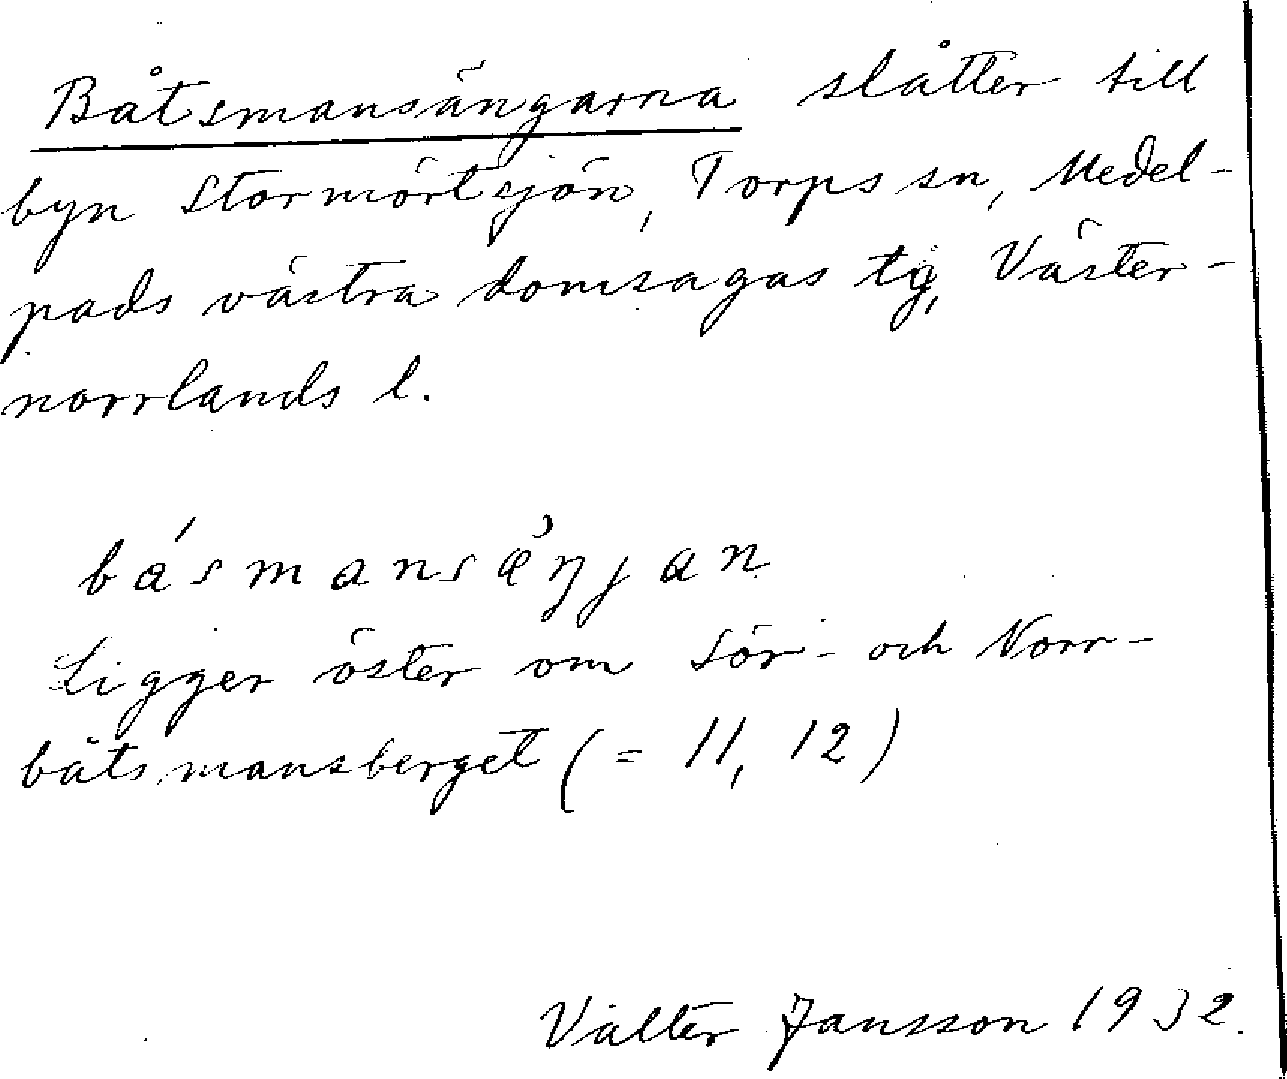 Båtsmansängarna slåtter till
byn Stormörtsjön, Torps sn, Medel-
pads västra domsagas tg, Väster-
norrlands l.
básmansæ̀ŋjan
Ligger öster om Sör- och Norr-
båtsmansberget (= 11, 12)
Valter Jansson 1932.